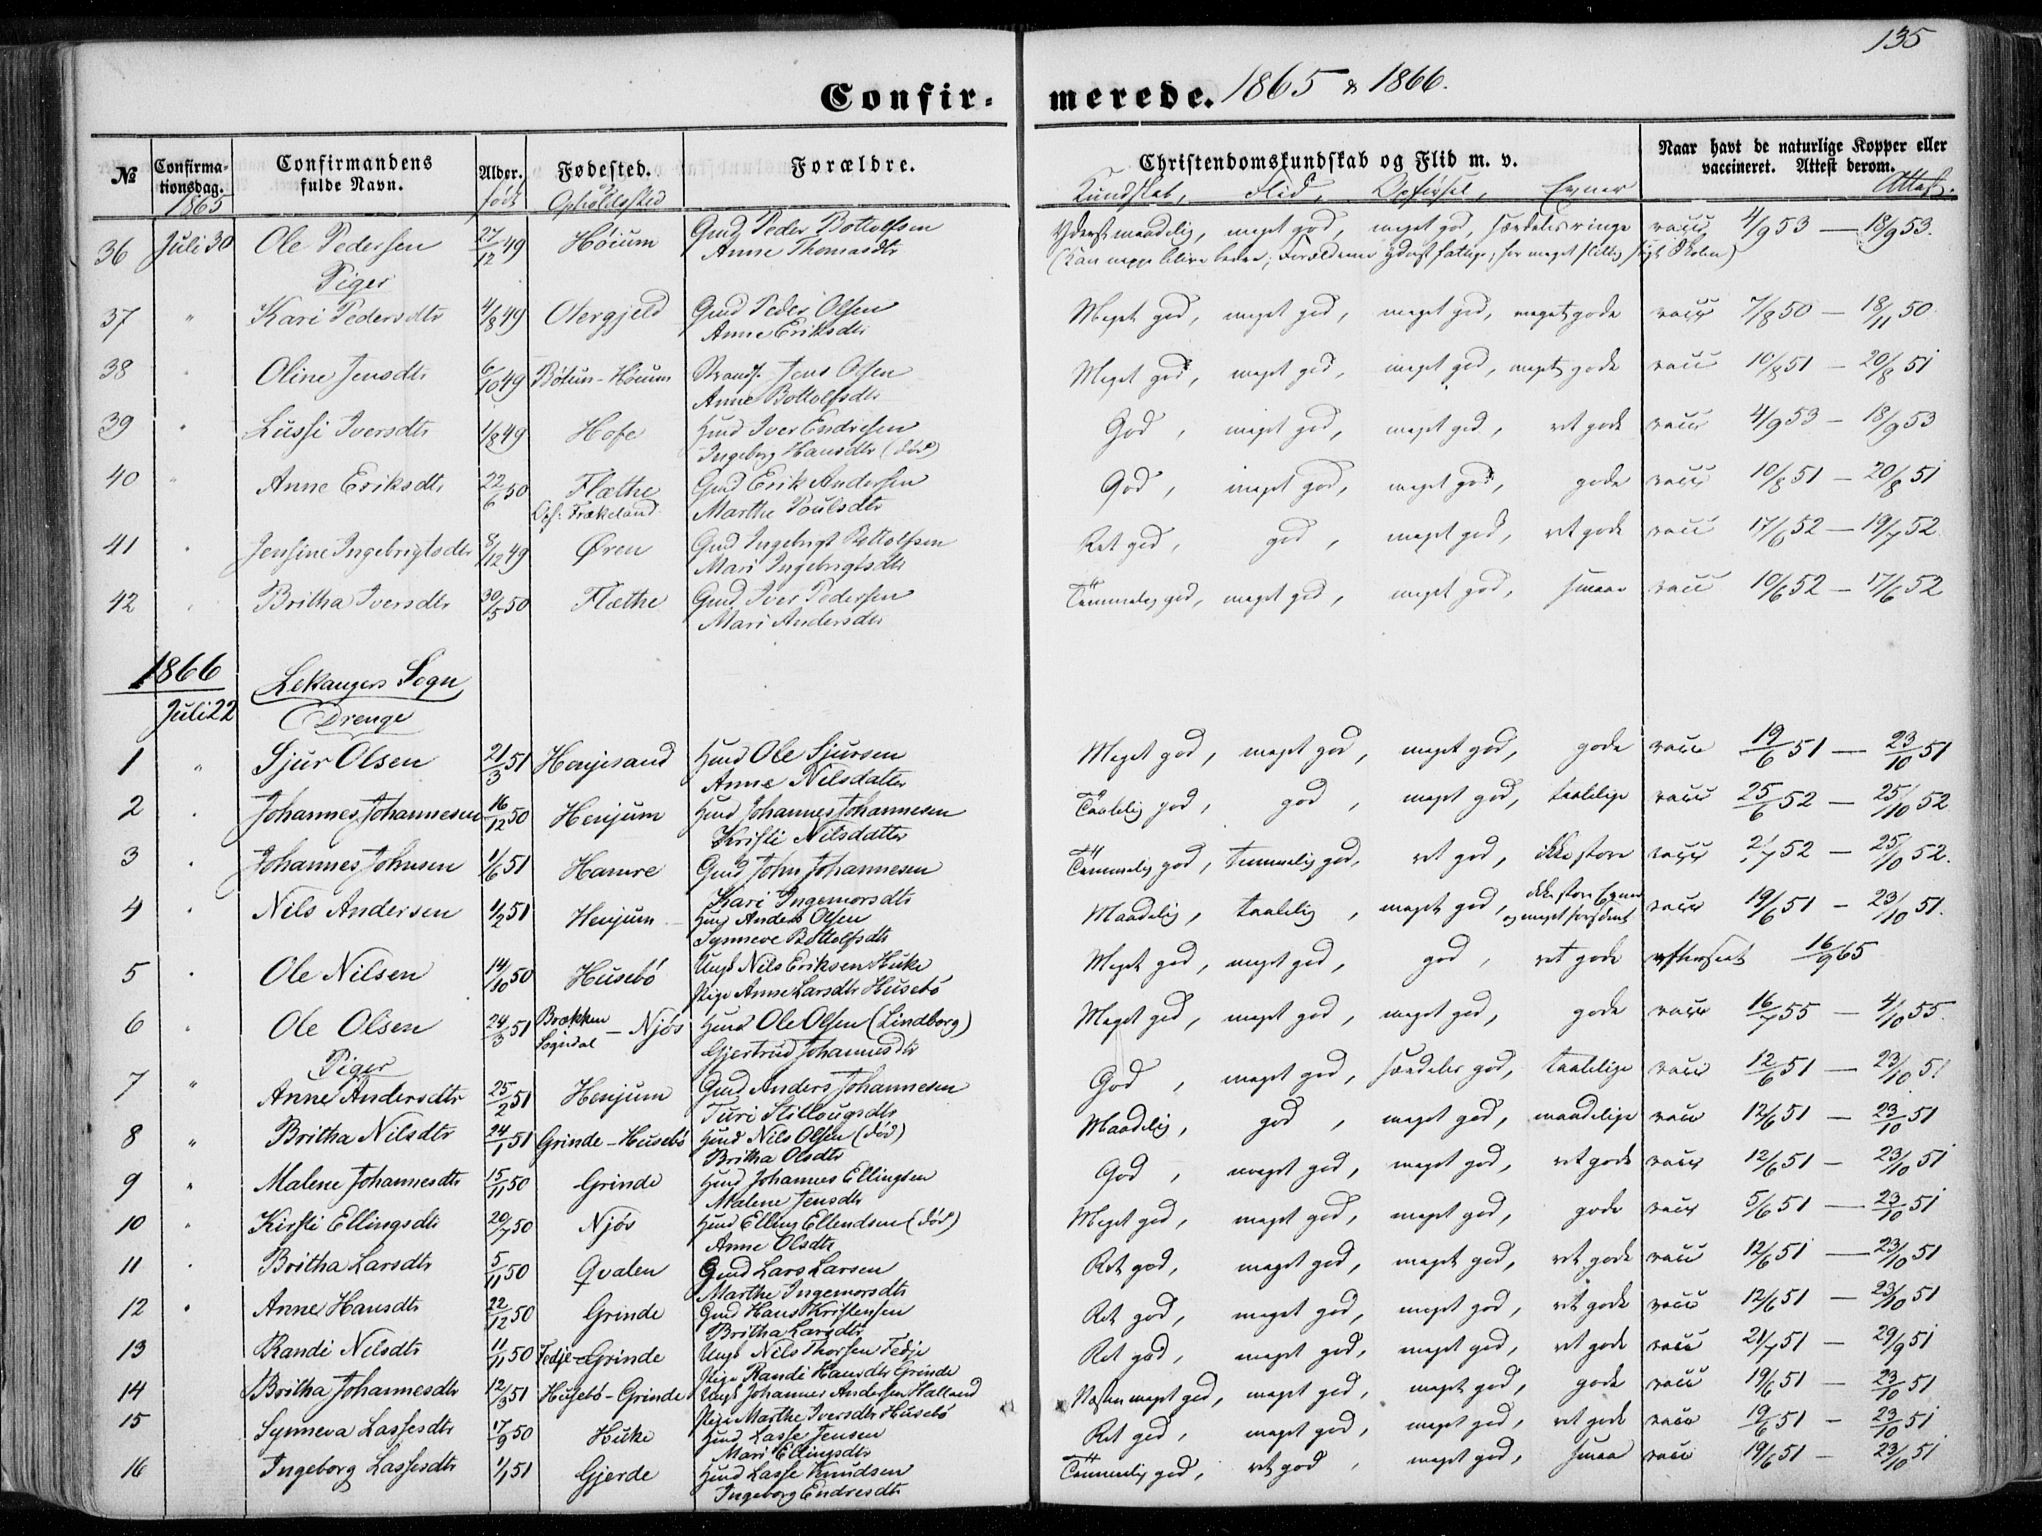 135
Confir- merede. 1865 & 1866.
№ Confirma-tionsdag. Confirmandens fulde Navn. Alder. Fødested. Forældre. Christendomskundskab og Flid m. v. Naar havt de naturlige Kopper eller vaccineret. Attest derom.
1865 født Opholdssted Kundskab, Flid, Opførsel, Evner Attest.
36 Juli 30 Ole Pedersen 27/12 49 Høium Gmd Peder Bottolfsen Yderst maadelig, meget god, meget god, særdeles ringe vacc 4/9 53 — 18/9 53.
Anne Thomasdtr (Kan neppe blive bedre; Forældrene yderst fattige; har meget flittig søgt Skolen)
Piger
37 " Kari Pedersdtr 4/8 49 Otergjeld Gmd Peder Olsen Meget god, meget god, meget god, meget gode vacc 7/8 50 — 18/11 50
Anne Eriksdtr
38 " Oline Jensdtr 6/10 49 Bøtun - Høium Strands. Jens Olsen Meget god, meget god, meget god, meget gode vacc 10/8 51 — 20/8 51
Anne Bottolfsdtr
39 " Lussi Iversdtr 1/8 49 Hofe Hmd Iver Endresen God, meget god, meget god, ret gode vacc 4/9 53 — 18/9 53
Ingeborg Hansdtr (død)
40 " Anne Eriksdtr 22/6 50 Flæthe Gmd Erik Andersen God, meget god, meget god, gode vacc 10/8 51 — 20/8 51
Oph: Frækeland Marthe Poulsdtr
41 " Jensine Ingebrigtsdtr 8/12 49 Øren Gmd Ingebrigt Bottolfsen Ret god, god, meget god, ret gode vacc 17/6 52 — 19/7 52
Mari Ingebrigtsdtr
42 " Britha Iversdtr 30/5 50 Flæthe Gmd Iver Pedersen Temmelig god, meget god, meget god, smaae vacc 10/6 52 — 17/6 52
Mari Andersdtr
1866 Lekangers Sogn
Juli 22 Drenge
1 " Sjur Olsen 21/3 51 Henjesand Hmd Ole Sjursen Meget god, meget god, meget god, gode vacc 19/6 51 — 23/10 51
Anne Nilsdatter
2 " Johannes Johannesen 16/12 50 Henjum Hmd Johannes Johannesen Taalelig god, god, meget god, taalelige vacc 25/6 52 — 25/10 52
Kristi Nilsdatter
3 " Johannes Johnsen 1/6 51 Hamre Gmd John Johannesen Temmelig god, temmelig god, ret god, ikke store vacc 2/7 52 — 25/10 52.
Kari Ingemorsdtr
4 " Nils Andersen 1/2 51 Henjum Hmd Anders Olsen Maadelig, taalelig, meget god, ikke store Evner og meget forsømt vacc 19/6 51 — 23/10 51.
Synneve Bottolfsdtr
5 " Ole Nilsen 14/10 50 Husebø Ungk Nils Eriksen Huke Meget god, meget god, god, ret gode efterseet 16/9 65
Pige Anne Larsdtr Husebø
6 " Ole Olsen 24/3 51 Brækken Sogndal - Njøs Hmd Ole Olsen (Lindborg) Meget god, meget god, meget god, gode vacc 16/7 55 — 4/10 55.
Gjertrud Johannesdtr
Piger
7 " Anne Andersdtr 25/2 51 Henjum Gmd Anders Johannesen God, meget god, særdeles god, taalelige vacc 12/6 51 — 23/10 51
Turi Stillougsdtr
8 " Britha Nilsdtr 24/1 51 Grinde - Husebø Hmd Nils Olsen (død) Maadelig, god, meget god, maadelige vacc 12/6 51 — 23/10 51
Britha Olsdtr
9 " Malene Johannesdtr 15/11 50 Grinde Hmd Johannes Ellingsen God, meget god, meget god, ret gode vacc 12/6 51 — 23/10 51
Malene Jensdtr
10 " Kirsti Ellingsdtr 20/7 50 Njøs Hmd Elling Ellendsen (død) Meget god, meget god, meget god, gode vacc 5/6 51 — 23/10 51
Anne Olsdtr
11 " Britha Larsdtr 5/11 50 Qvalen Gmd Lars Larsen Ret god, meget god, meget god, ret gode vacc 12/6 51 — 23/10 51
Marthe Ingemorsdtr
12 " Anne Hansdtr 22/12 50 Grinde Gmd Hans Kristensen Ret god, meget god, meget god, ret gode vacc 12/6 51 — 23/10 51
Britha Larsdtr
13 Randi Nilsdtr 11/11 50 Fedje - Grinde Ungk Nils Thorsen Fedje Ret god, meget god, meget god, ret gode vacc 21/7 51 — 29/9 51
Pige Randi Hansdtr Grinde
14 Britha Johannesdtr 12/3 51 Husebø - Grinde Ungk Johannes Andersen Halland Næsten meget god, meget god, meget god, gode vacc 19/6 51 — 23/10 51
Pige Marthe Iversdtr Husebø
15 Synneva Lassesdtr 17/9 50 Huke Hmd Lasse Jensen Ret god, meget god, meget god, ret gode vacc 19/6 51 — 23/10 51
Mari Ellingsdtr
16 Ingeborg Lassesdtr 1/1 51 Gjerde Hmd Lasse Knudsen Temmelig god, ret god, meget god, smaa vacc 19/6 51 — 23/10 51
Ingeborg Endresdtr